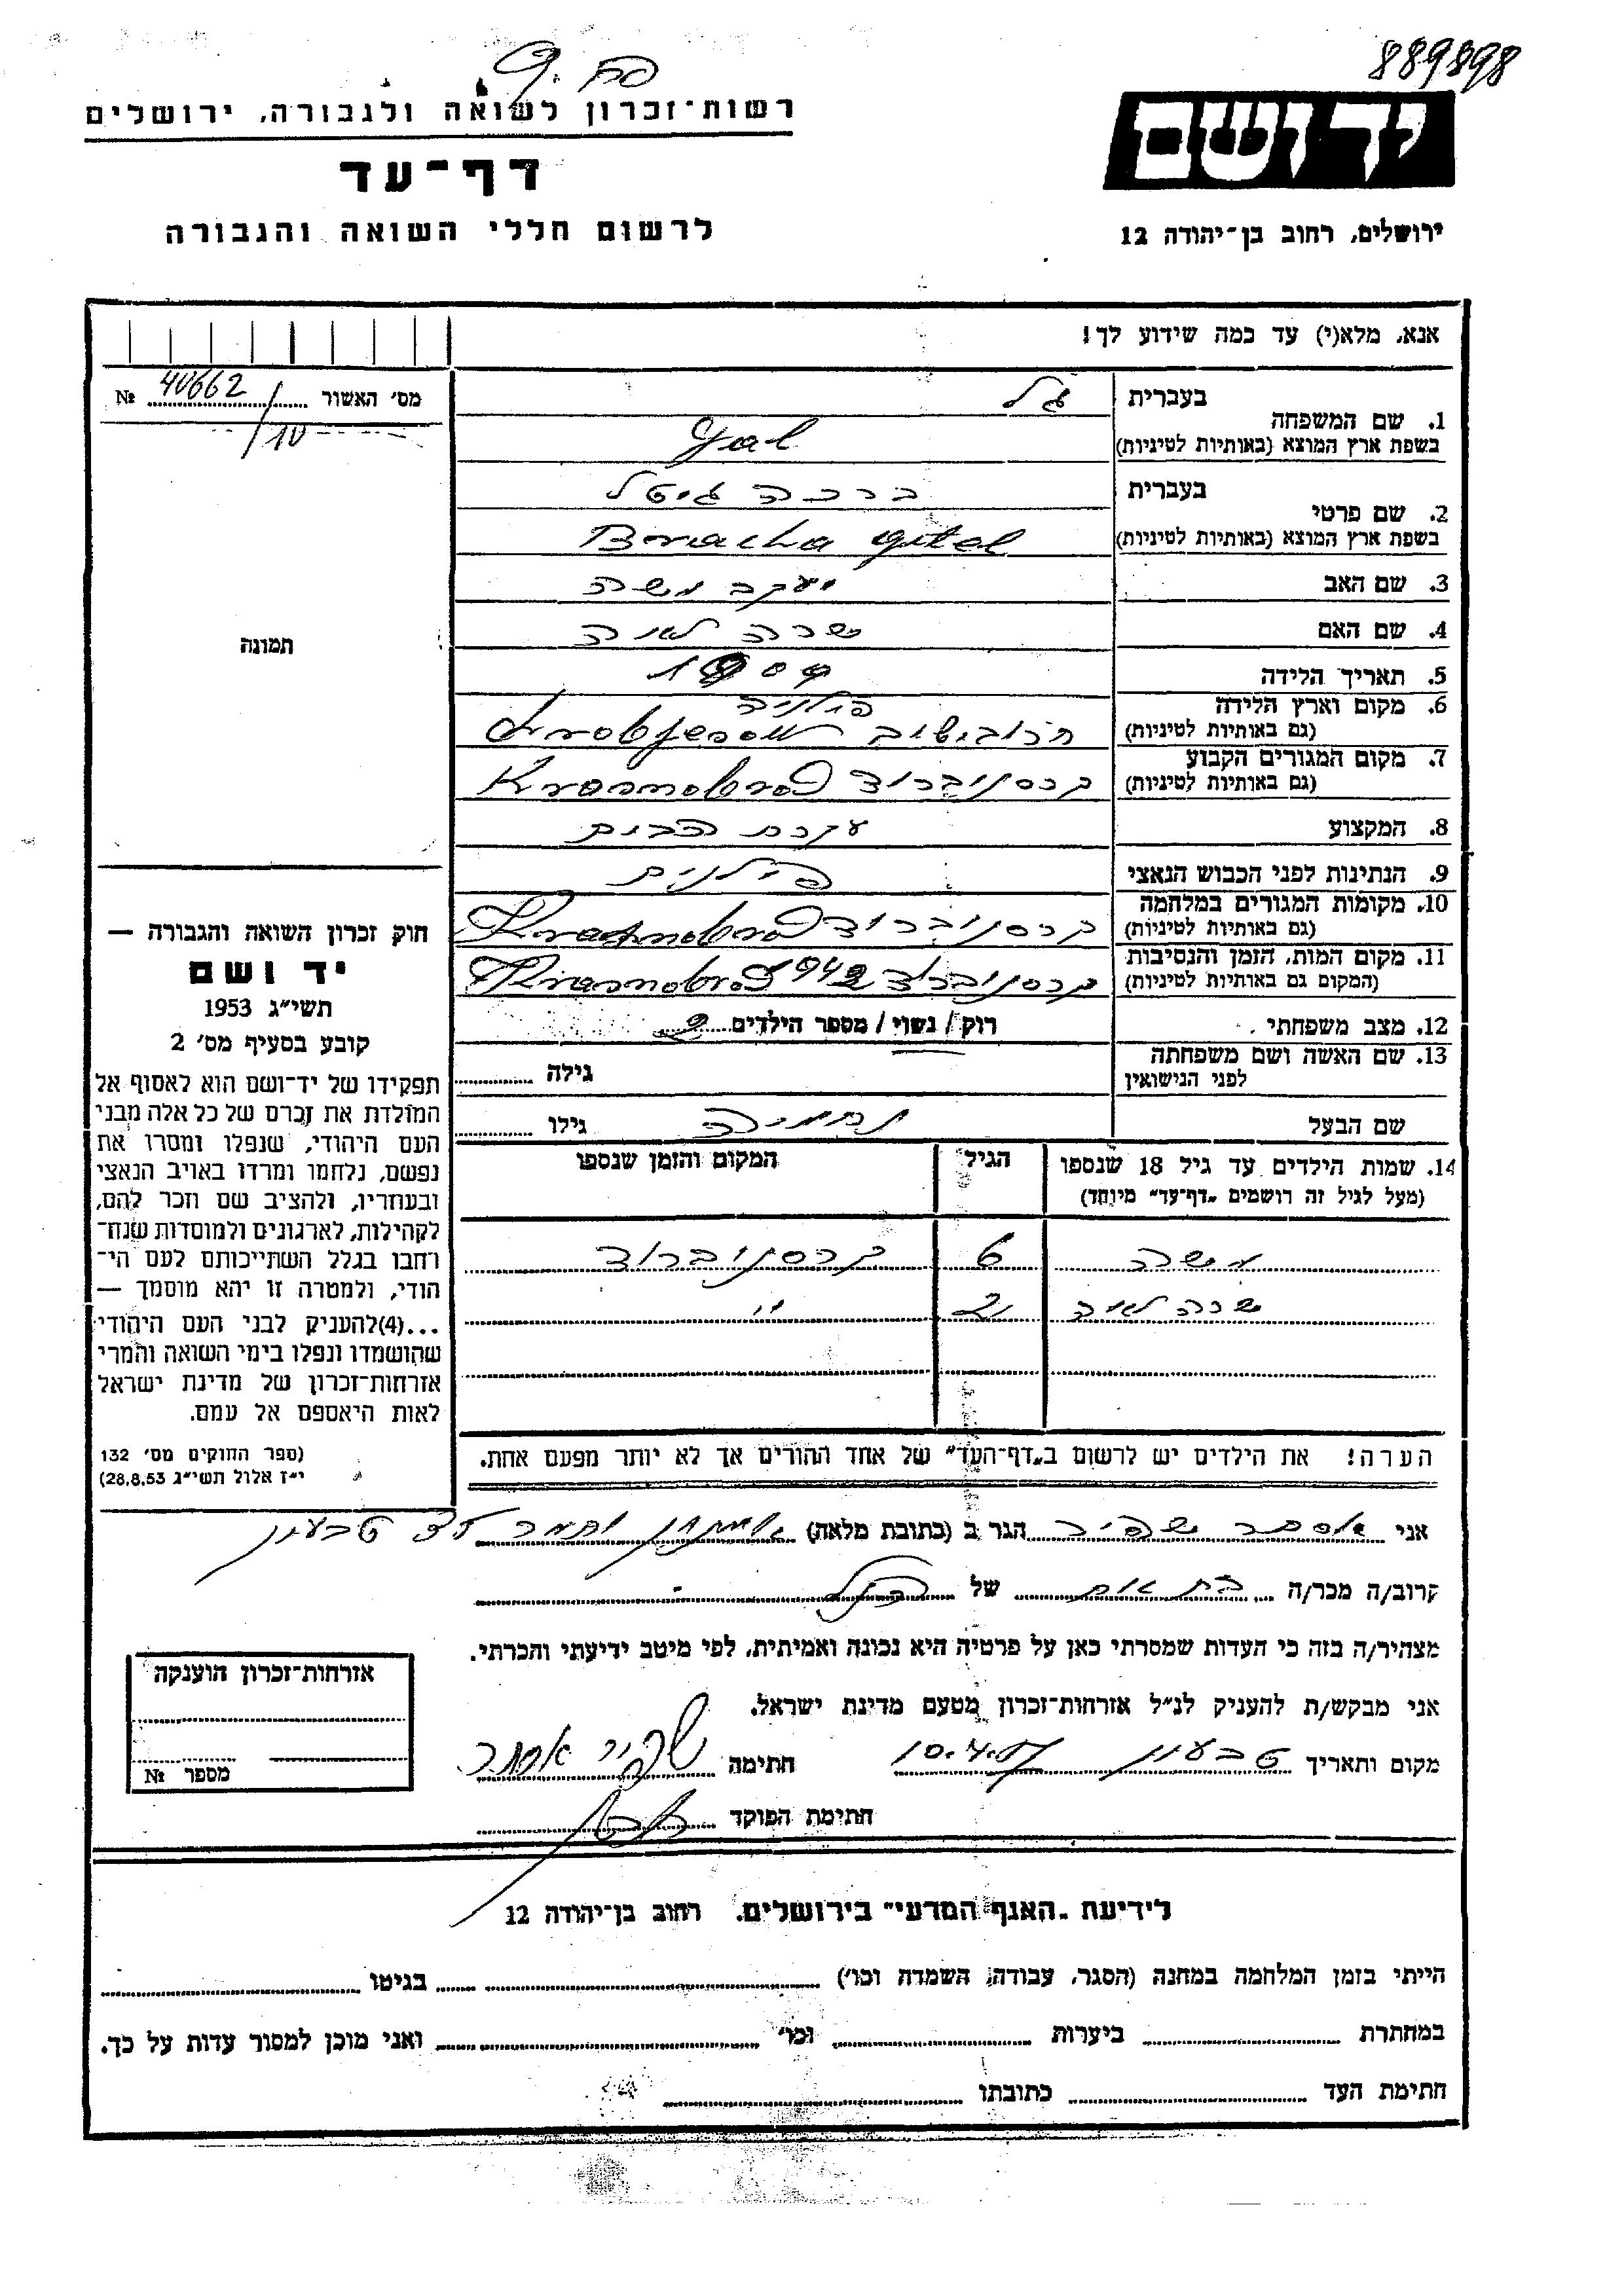 889898
יד ושם
ירושלים, רחוב בן־יהודה 12
רשות־זכרון לשואה ולגבורה, ירושלים
דף־עד
לרשום חללי השואה והגבורה
אנא, מלא(י) עד כמה שידוע לך!
מס' האשור 40662 №
/10
1. שם המשפחה בעברית גל
בשפת ארץ המוצא (באותיות לטיניות) Gal
2. שם פרטי בעברית ברכה גיטל
בשפת ארץ המוצא (באותיות לטיניות) Bracha Gitel
3. שם האב יעקב משה
4. שם האם שרה לאה
5. תאריך הלידה
6. מקום וארץ הלידה פולניה
(גם באותיות לטיניות) הרובישוב
7. מקום המגורים הקבוע
(גם באותיות לטיניות) קרסנוברוד Krasnobrod
8. המקצוע עקרת הבית
9. הנתינות לפני הכבוש הנאצי פולנית
10. מקומות המגורים במלחמה
(גם באותיות לטיניות) קרסנוברוד Krasnobrod
11. מקום המות, הזמן והנסיבות
(המקום גם באותיות לטיניות) קרסנוברוד 942 Krasnobrod
12. מצב משפחתי רוק / נשוי / מספר הילדים 2
13. שם האשה ושם משפחתה
לפני הנישואין גילה
שם הבעל נחמיה גילו
14. שמות הילדים עד גיל 18 שנספו הגיל המקום והזמן שנספו
(מעל לגיל זה רושמים „דף־עד" מיוחד)
משה 6 קרסנוברוד
שרה לאה 2 "
הערה! את הילדים יש לרשום ב„דף־העד" של אחד ההורים אך לא יותר מפעם אחת.
תמונה
חוק זכרון השואה והגבורה —
יד ושם
תשי"ג 1953
קובע בסעיף מס' 2
תפקידו של יד־ושם הוא לאסוף אל
המולדת את זכרם של כל אלה מבני
העם היהודי, שנפלו ומסרו את
נפשם, נלחמו ומרדו באויב הנאצי
ובעוזריו, ולהציב שם וזכר להם,
לקהילות, לארגונים ולמוסדות שנח־
רחבו בגלל השתייכותם לעם הי־
הודי, ולמטרה זו יהא מוסמך —
...(4)להעניק לבני העם היהודי
שהושמדו ונפלו בימי השואה והמרי
אזרחות־זכרון של מדינת ישראל
לאות היאספם אל עמם.
(ספר החוקים מס' 132
י"ז אלול תשי"ג 28.8.53)
אני אסתר שפיר הגר ב (כתובת מלאה) טבעון
קרוב/ה מכר/ה בת אח של הנ"ל
מצהיר/ה בזה כי העדות שמסרתי כאן על פרטיה היא נכונה ואמיתית, לפי מיטב ידיעתי והכרתי.
אני מבקש/ת להעניק לנ"ל אזרחות־זכרון מטעם מדינת ישראל.
מקום ותאריך טבעון 10.4.57 חתימה שפיר אסתר
חתימת הפוקד
אזרחות־זכרון הוענקה
מספר №
לידיעת „האגף המדעי" בירושלים, רחוב בן־יהודה 12
הייתי בזמן המלחמה במחנה (הסגר, עבודה, השמדה וכו') בגיטו
במחתרת ביערות וכו' ואני מוכן למסור עדות על כך.
חתימת העד כתובתו